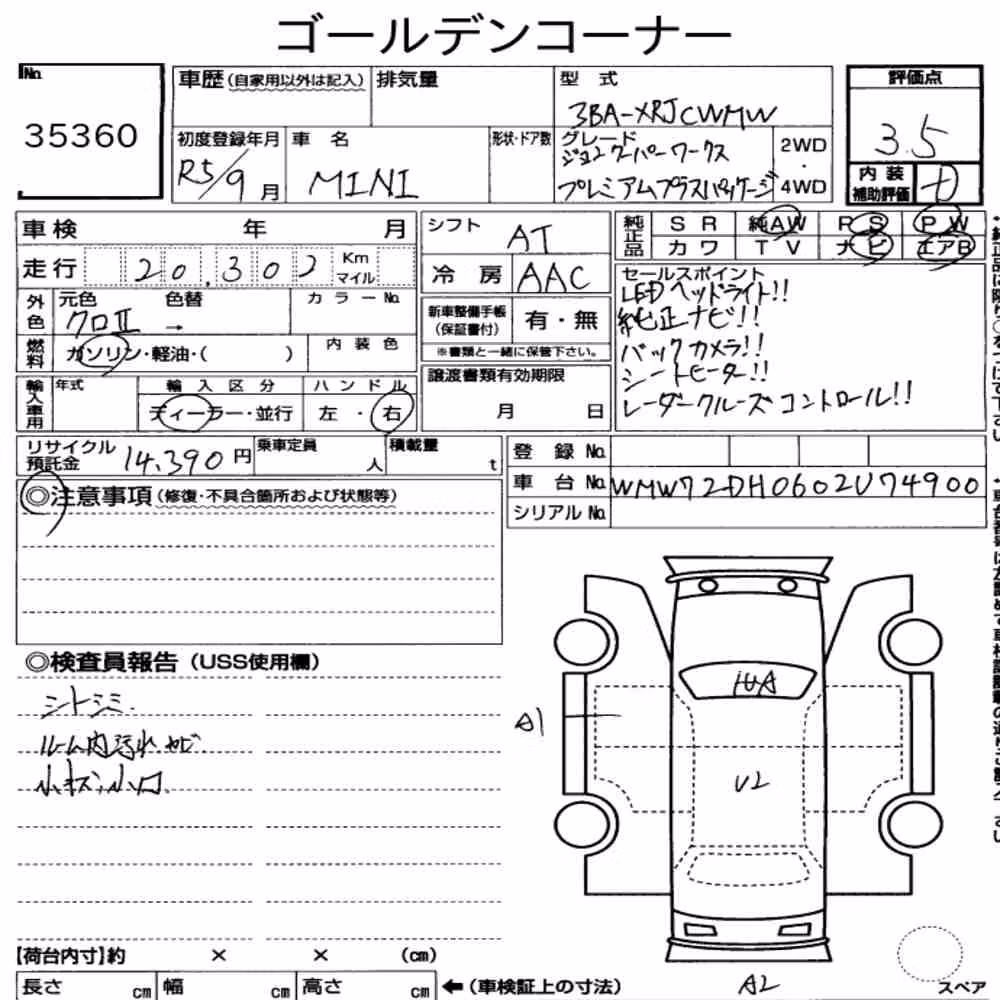 ゴールデンコーナー
No.
35360
車歴(自家用以外は記入)
排気量
型 式
3BA-XRJCWMW
評価点
3.5
初度登録年月
R5/9月
車 名
MINI
形状・ドア数
グレード
ジョンクーパーワークス
プレミアムプラスパッケージ
2WD
・
4WD
内 装
補助評価
D
車検 年 月
走行 20,302 Km
マイル
シフト
AT
純正品
S R 純AW P S P W
カワ T V ナビ エアB
冷 房
AAC
外色
元色 色替
クロII →
カラーNo.
新車整備手帳
(保証書付)
有・無
※書類と一緒に保管下さい。
セールスポイント
LEDヘッドライト!!
純正ナビ!!
バックカメラ!!
シートヒーター!!
レーダークルーズコントロール!!
燃料
ガソリン・軽油・( )
内 装 色
輸入車用
年式
輸 入 区 分
ディーラー・並行
ハ ン ド ル
左 ・ 右
譲渡書類有効期限
月 日
リサイクル
預託金
14,390円
乗車定員
人
積載量
t
登 録 No.
車 台 No. WMW72DH0602U74900
シリアル No.
◎注意事項(修復・不具合箇所および状態等)
◎検査員報告(USS使用欄)
シートシミ.
ルーム内汚れ カビ
小キズ,小凹.
A1
U2
A2
スペア
【荷台内寸】約 × × (cm)
長さ cm 幅 cm 高さ cm
←(車検証上の寸法)